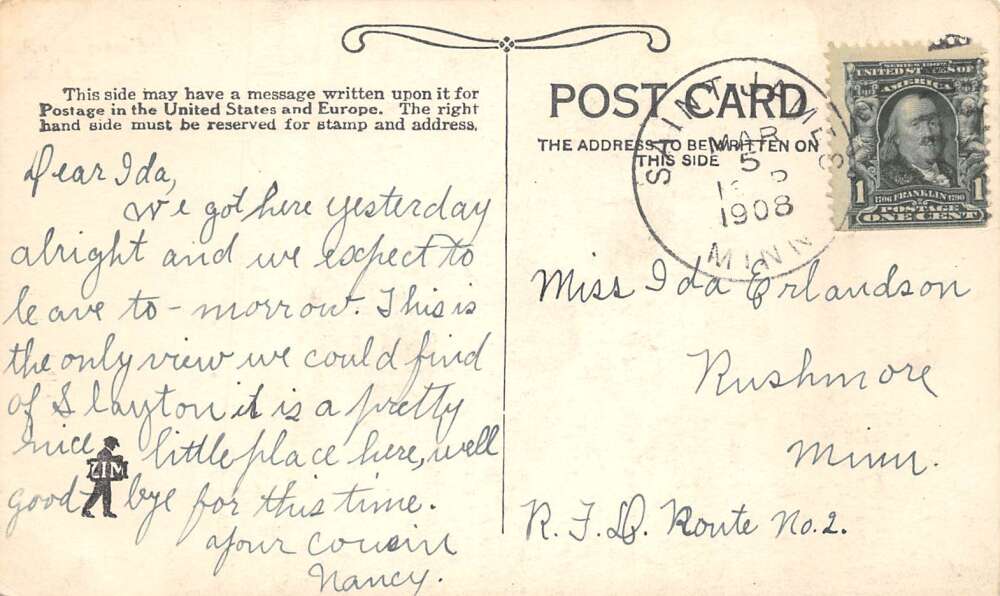 This side may have a message written upon it for
Postage in the United States and Europe. The right
hand side must be reserved for stamp and address.
Dear Ida,
We got here yesterday
alright and we expect to
leave to-morrow. This is
the only view we could find
of Slayton it is a pretty
nice little place here, well
ZIM
good-bye for this time.
Your cousin
Nancy.
POST CARD
THE ADDRESS TO BE WRITTEN ON
THIS SIDE
SAINT JAMES
MAR
5
1908
MINN
SERIES 1902
UNITED STATES OF
AMERICA
1 1706 FRANKLIN 1790 1
POSTAGE
ONE CENT
Miss Ida Erlandson
Rushmore
Minn.
R.F.D. Route No. 2.